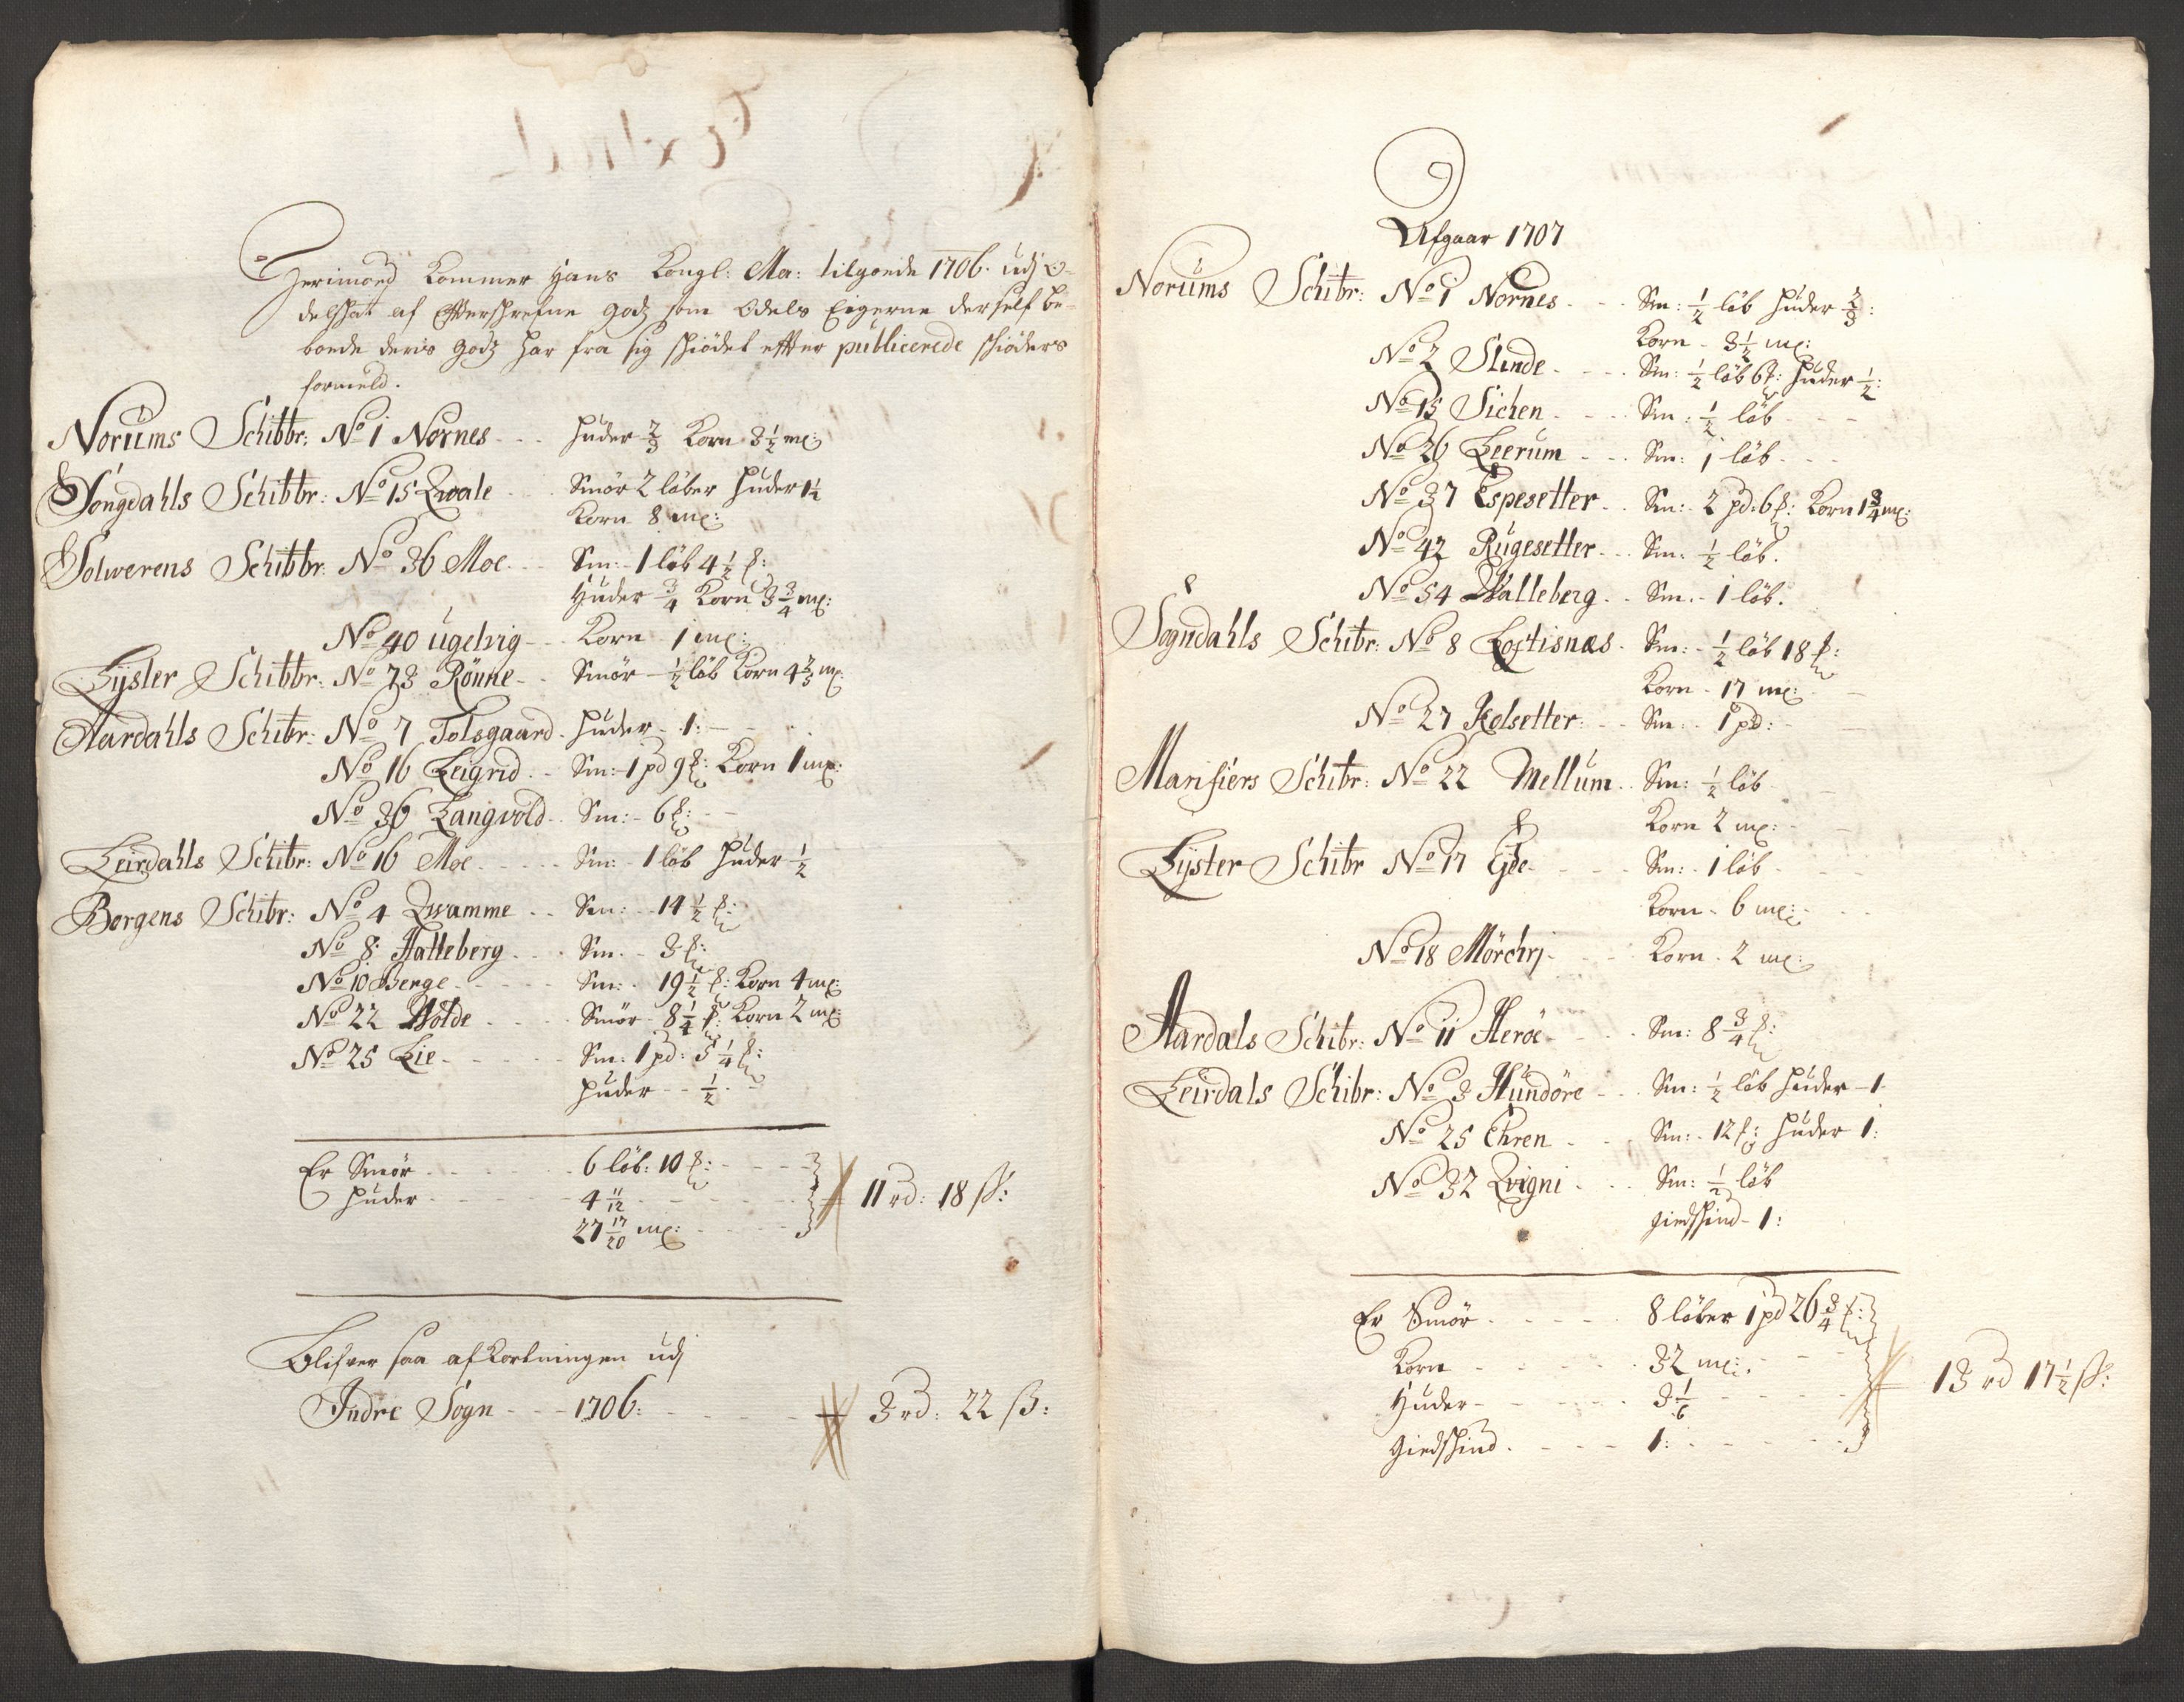 Herimoed kommer Hans Kongl: Ma: tilgoede 1706. udj O-
delskat af Efterschrefne godz som Odels Eigerne derself be-
boede deris godz har fra sig skiödet efter publicerede skiöders
formeld.
Norums Schibbr: No 1 Nornes - - Huder 2/3 Korn 3 1/2 ml:
Songdahls Schibbr: No 15 Qwale - - Smör 2 löber Huder 1 1/4
Korn 8 ml:
Solwerens Schibbr: No 36 Moe - - Sm: - 1 löb 4 1/2 ß:
Huder 3/4 Korn 3 3/4 ml:
No 40 Ugelvig - - Korn - 1 ml:
Lyster Schibbr: No 73 Rönne - - Smör - 1/2 löb Korn 4 3/5 ml:
Aardahls Schibr: No 7 Tolsgaard - Huder - 1: -
No 16 Leigrid - - Sm: - 1 pd 9 ß: Korn 1 ml:
No 36 Langvold - - Sm: - 6 ß: - -
Leirdahls Schibr: No 16 Moe - - - Sm: - 1 löb Huder 1/2
Borgens Schibr: No 4 Qwamme - - Sm: - 14 1/2 ß:
No 8 Hatleberg - - - Sm: - 3 ß:
No 10 Berge - - - - Sm: - 19 1/2 ß: Korn 4 ml:
No 22 Wolde - - - Smör - 8 1/4 ß: Korn 2 ml:
No 25 Lie - - - - Sm: 1 pd: 5 1/4 ß:
Huder - - 1/2 - -
Er Smör - - - - 6 löb: 10 ß: - - -
Huder - - - - 4 11/12 - - - - 11 rd: 18 ß:
27 17/20 ml: - - -
Blifver saa afkortningen udj
Indre Sogn - - - 1706: - - - 3 rd: 22 ß:
Afgaar 1707
Norums Schibr: No 1 Nornes - - Sm: 1/2 löb Huder 2/3:
Korn - 3 1/2 ml:
No 2 Slinde - - - Sm: 1/2 löb 6 ß: Huder 1/2:
No 15 Sichen - - - Sm: 1/2 löb - - -
No 26 Leerum - - - Sm: 1 löb - - -
No 37 Espesetter - - Sm: 2 pd: 6 ß: Korn 1 3/4 ml:
No 42 Rugesetter - - Sm: 1/2 löb.
No 54 Walleberg - - Sm: - 1 löb.
Sogndahls Schibr: No 8 Loftisnæs - Sm: - 1/2 löb 18 ß:
Korn - 17 ml: -
No 27 Kelsetter: - - Sm: - 1 pd: -
Marifiers Schibr: No 22 Mellum - - Sm: 1/2 löb
Korn 2 ml: -
Lyster Schibr No 17 Eide - - - Sm: - 1 löb - - -
Korn - 6 ml: - - -
No 18 Mörchrj - - - Korn - 2 ml:
Aardals Schibr: No 11 Heröe - - - Sm: 8 3/4 ß:
Leirdals Schibr: No 3 Hundöre - - - Sm: 1/2 löb Huder - 1
No 25 Ehren - - - Sm: - 12 ß: Huder 1:
No 32 Qvigni - - - Sm: 1/2 löb
Giedskind - 1:
Er Smör - - - - 8 löber 1 pd 26 3/4 ß:
Korn - - - - 32 ml: - - -
Huder - - - - 3 1/6 - - - - 13 rd 17 1/2 ß:
Giedskind - - - - 1: - - - -